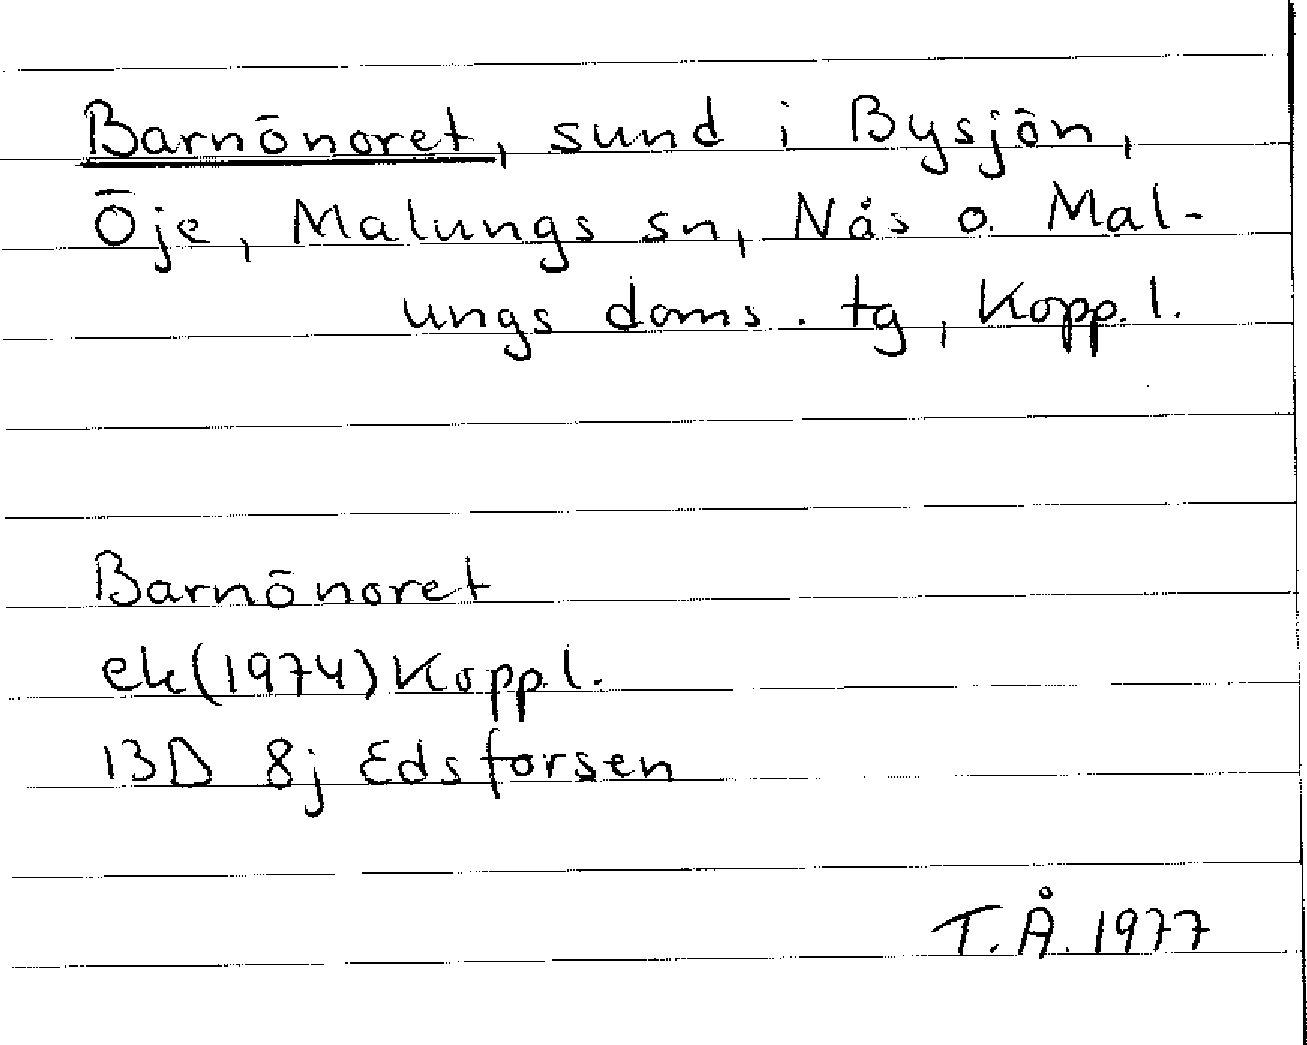 Barnönoret, sund i Bysjön,
Öje, Malungs sn, Nås o. Mal-
ungs doms. tg, Kopp. l.
Barnönoret
ek (1974) Kopp l.
13D 8j Edsforsen
T.Å. 1977